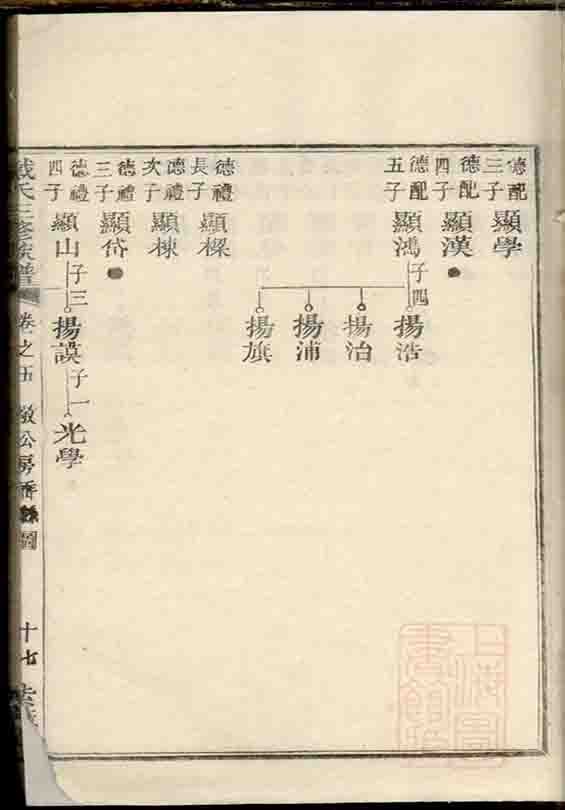 德配
三子
顯學
德配
四子
顯漢
德配
五子
顯鴻
子四
揚浩
揚治
揚浦
揚旗
德禮
長子
顯樑
德禮
次子
顯棟
德禮
三子
顯岱
德禮
四子
顯山
子三
揚謨
子一
光學
戴氏三修族譜
卷一之五
公房
圖
十七
上海圖書館藏